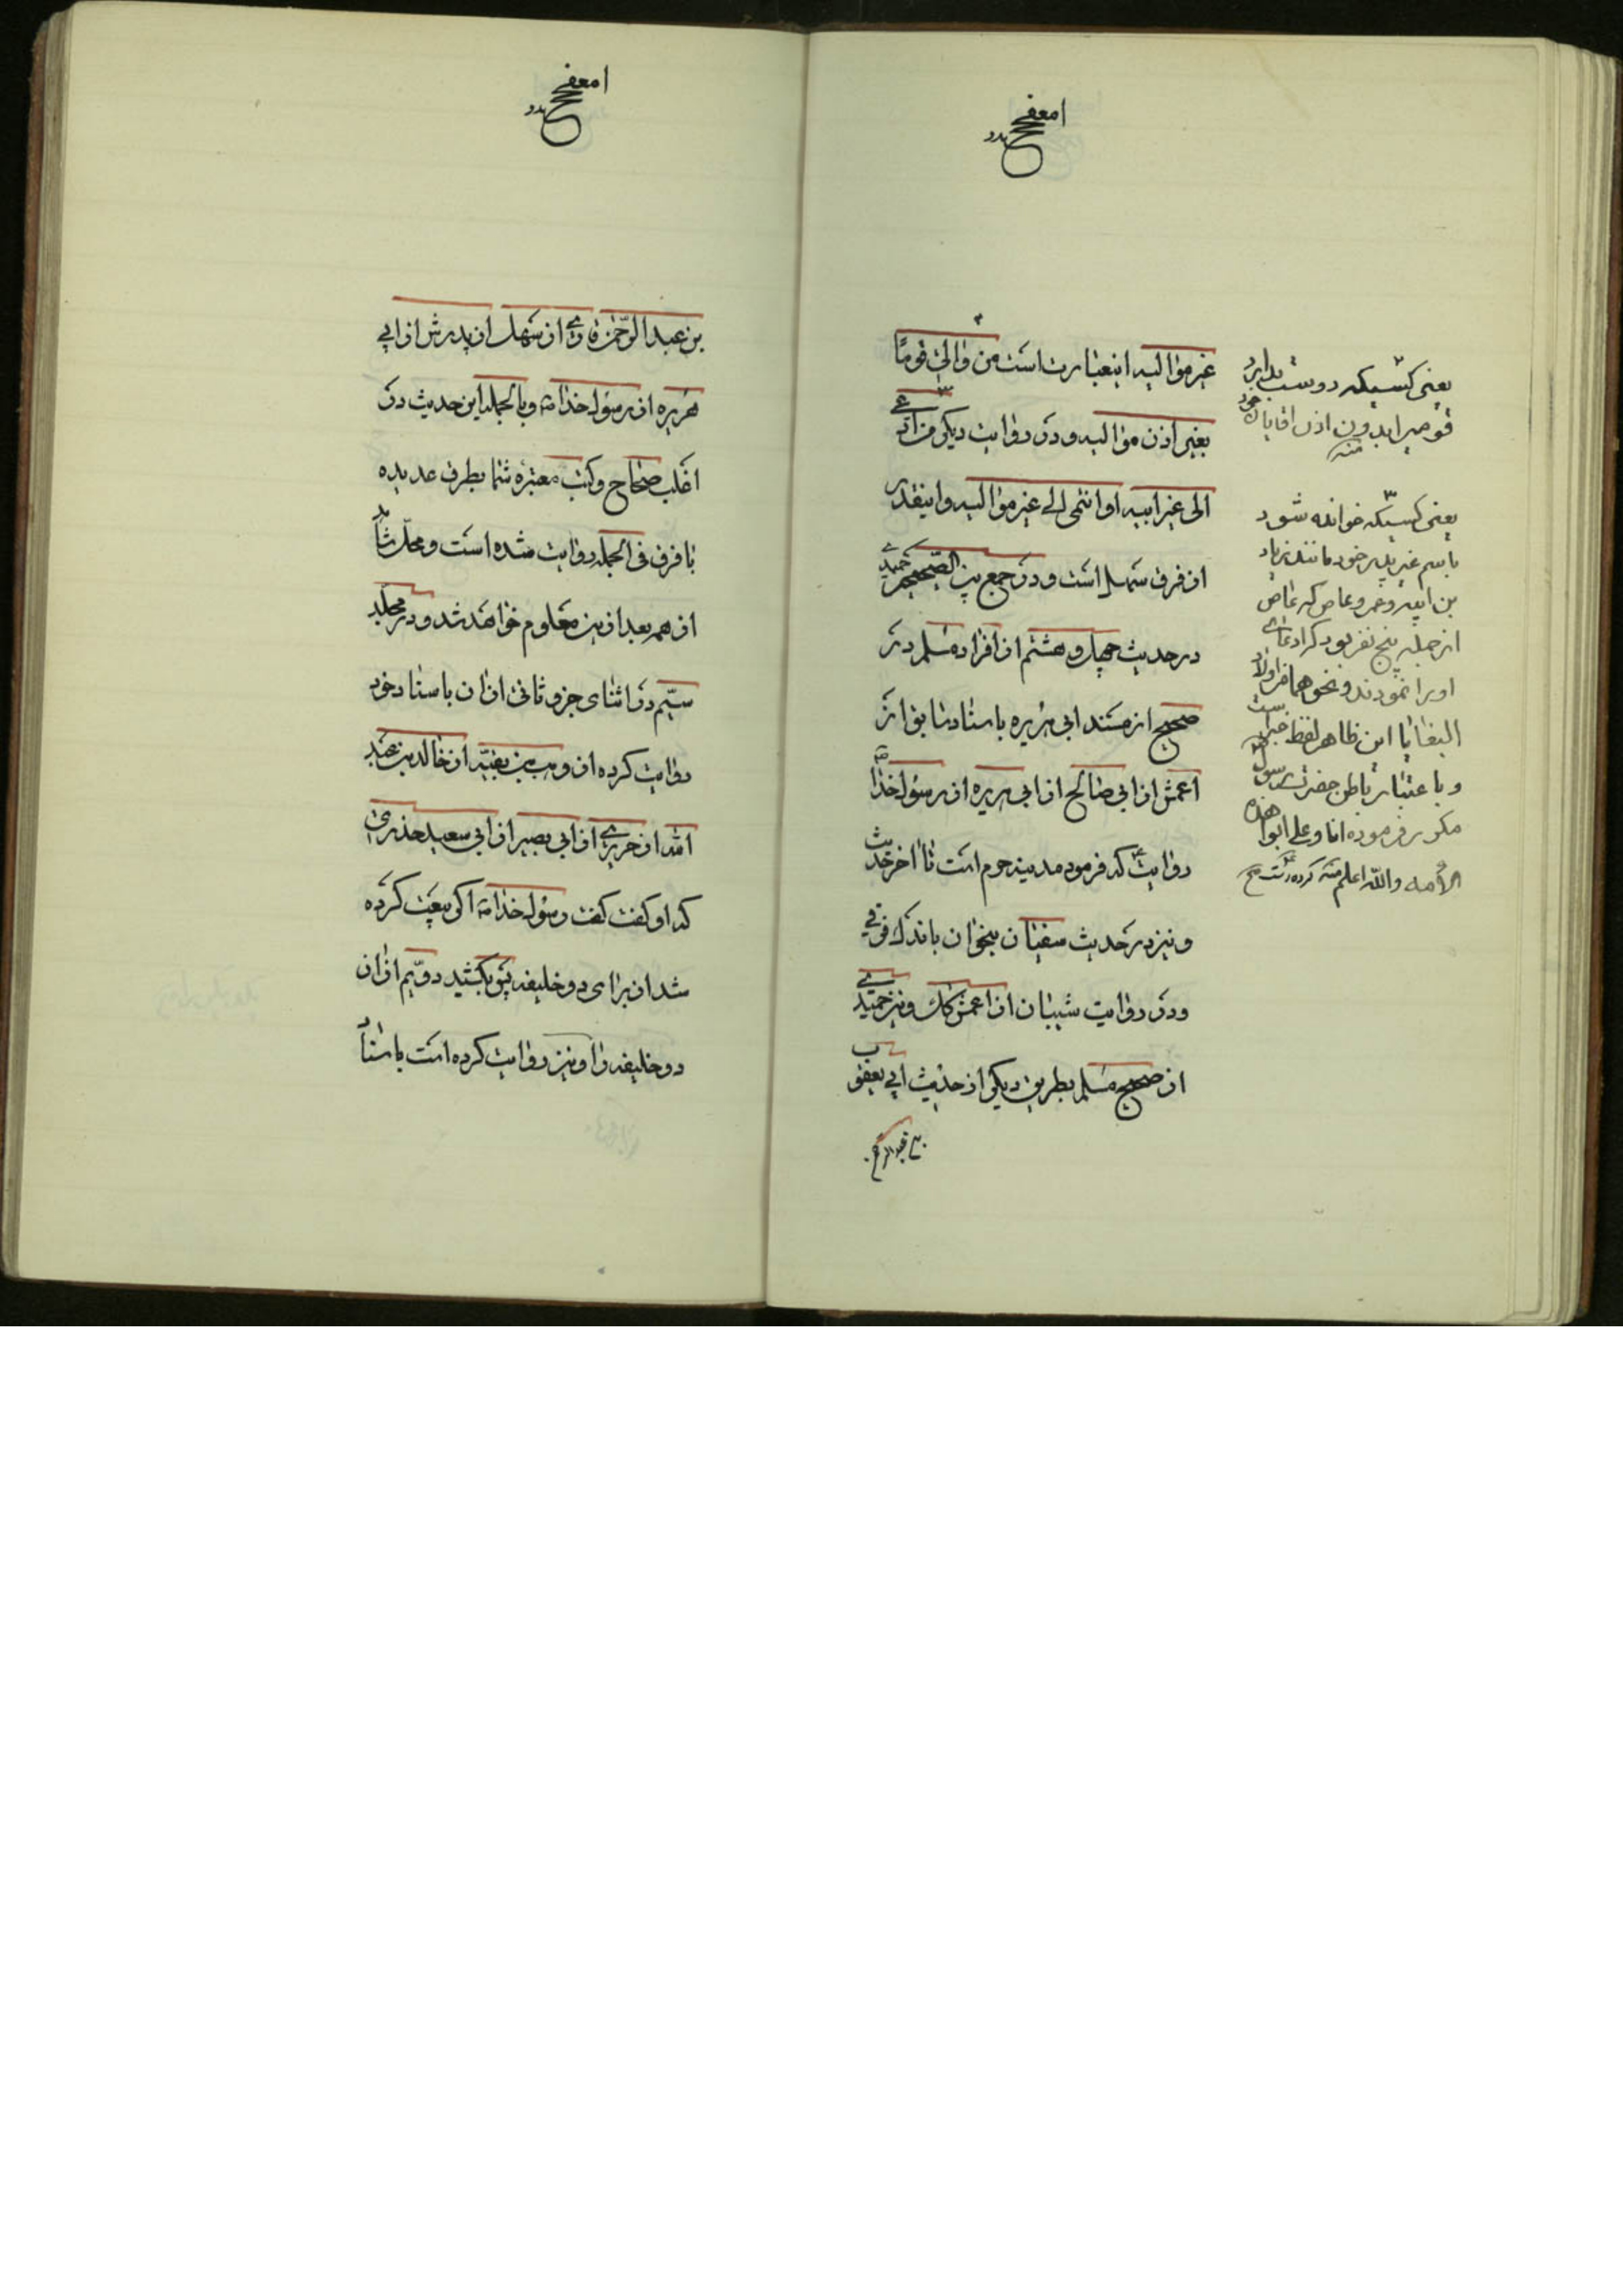 غیر موالیه اینعبارت است من والی قوما
بغیر اذن موالیه و در روایت دیگر من ادعی
الی غیر ابیه او انتمی الی غیر موالیه و اینقدر
از فرق سهل است و در جمع بین الصحیحین حمیدی
در حدیث چهل و هشتم از افراد مسلم در
صحیح از مسند ابی هریره باسناد سابق از
اعمش از ابی صالح از ابی هریره از رسول خدا صه
روایت که فرمود مدینه حرم است تا اخر حدیث
و نیز در حدیث سفیان بنحو ان باندک فرقی
و در روایت شیبان از اعمش کک و نیز حمیدی
از صحیح مسلم بطریق دیگر از حدیث ابی یعقوب
بن عبد الرحمن
یعنی کسیکه دوست بدارد
قومیرا بدون اذن اقایان خود
منه
یعنی کسیکه خوانده شود
باسم غیر پدر خود مانند زیاد
بن ابیه و عمرو عاص که عاص
از جمله پنج نفر بود که ادعای
او را نمودند و نحو هما من اولاد
البغایا این ظاهر لفظ خبر است
و باعتبار باطن حضرت رسول
مکرر فرموده انا و علی ابوا هذه
الأمه والله اعلم منه
بن عبد الرحمن قاری از سهل از پدرش از ابی
هریره از رسول خدا صه و بالجمله این حدیث در
اغلب صحاح و کتب معتبره شما بطرق عدیده
با فرق فی الجمله روایت شده است و محل شاهد
از هم بعد از این معلوم خواهد شد و در مجلد
سیم در اثنای جزو ثانی از ان باسناد خود
روایت کرده از وهب بن بقیه از خالد بن عبد
الله از جریری از ابی بصیر از ابی سعید خدری
که او گفت گفت رسول خدا صه اگر بیعت کرده
شد از برای دو خلیفه پس بکشید دویم از ان
دو خلیفه را و نیز روایت کرده است باسناد